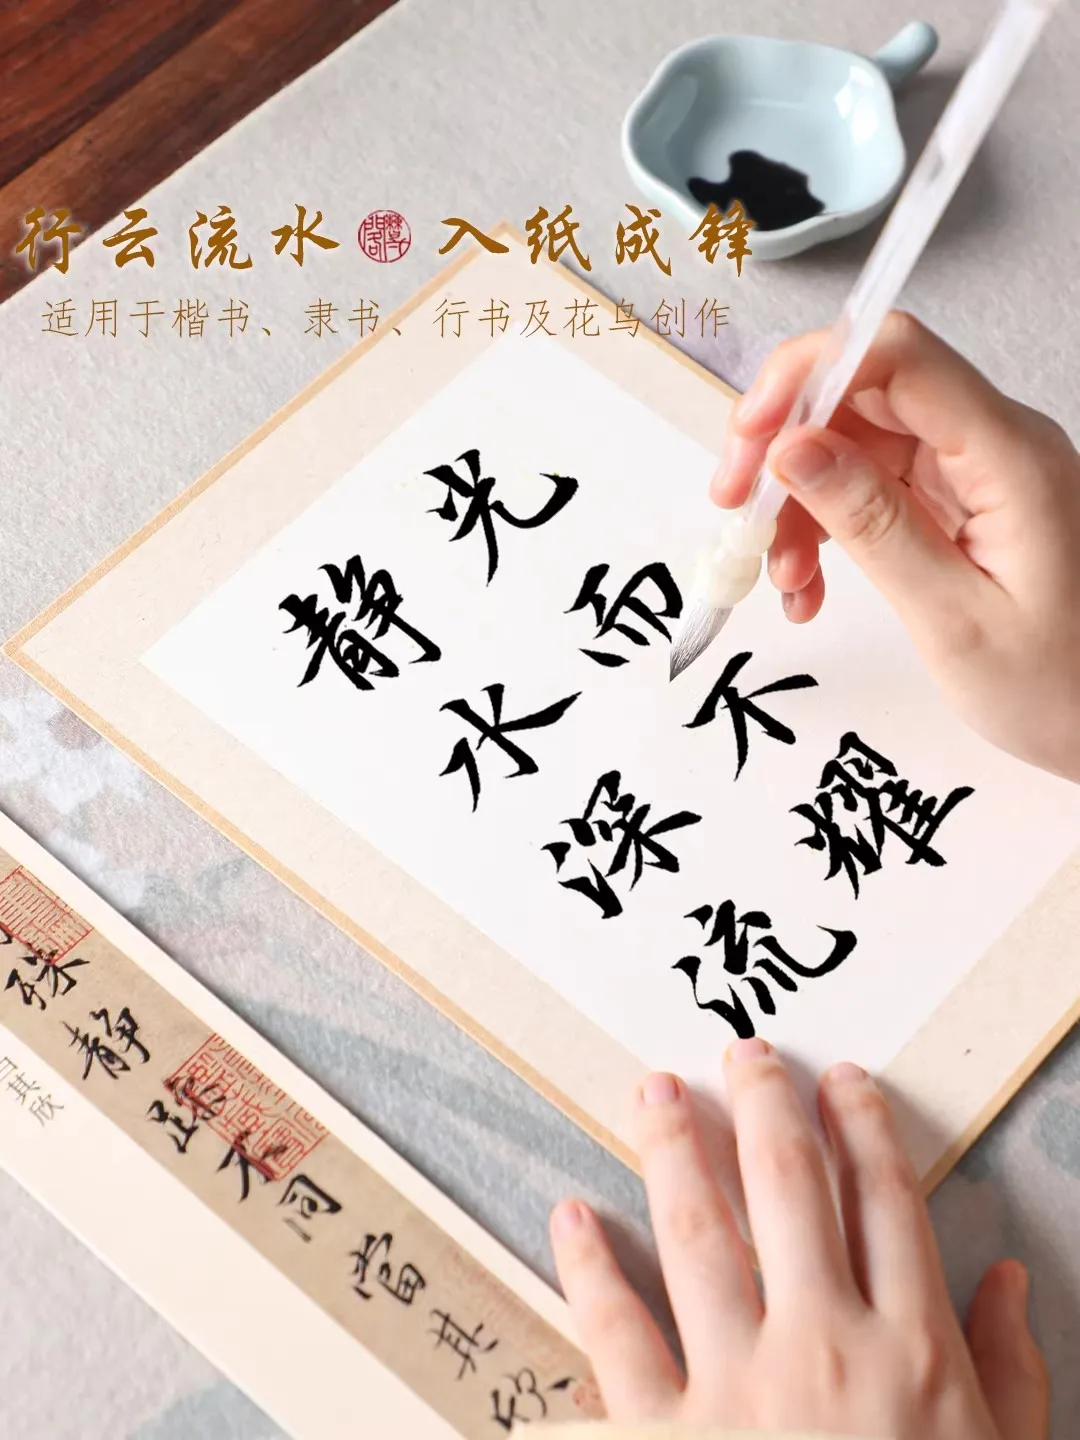 行云流水 入纸成锋
适用于楷书、隶书、行书及花鸟创作
光而不耀
静水深流
殊静躁不同当其欣
其欣